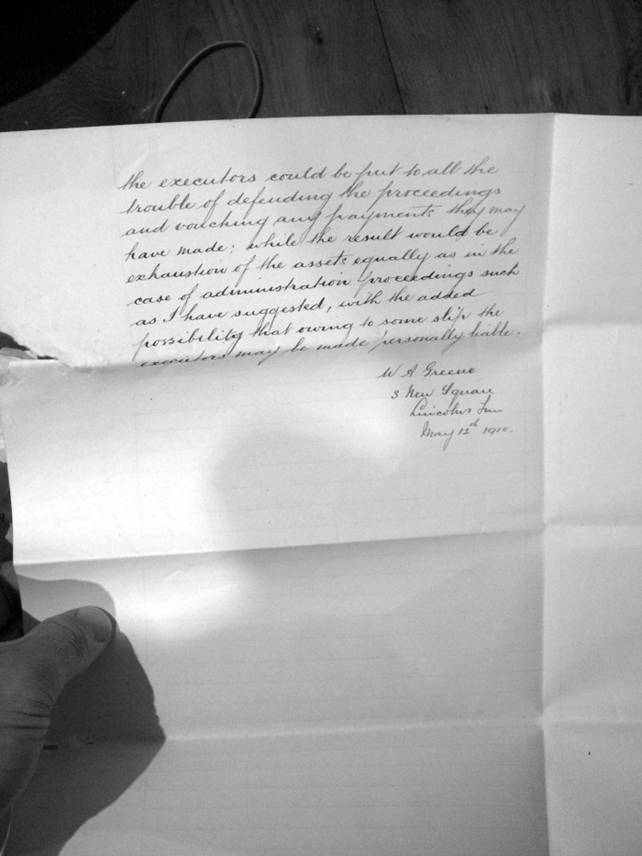 the executors could be put to all the
trouble of defending the proceedings
and vouching any payments they may
have made: while the result would be
exhaustion of the assets equally as in the
case of administration proceedings such
as I have suggested, with the added
possibility that owing to some slip the
executors may be made personally liable.
W A Greene
3 New Square
Lincolns Inn
May 12th 1910.